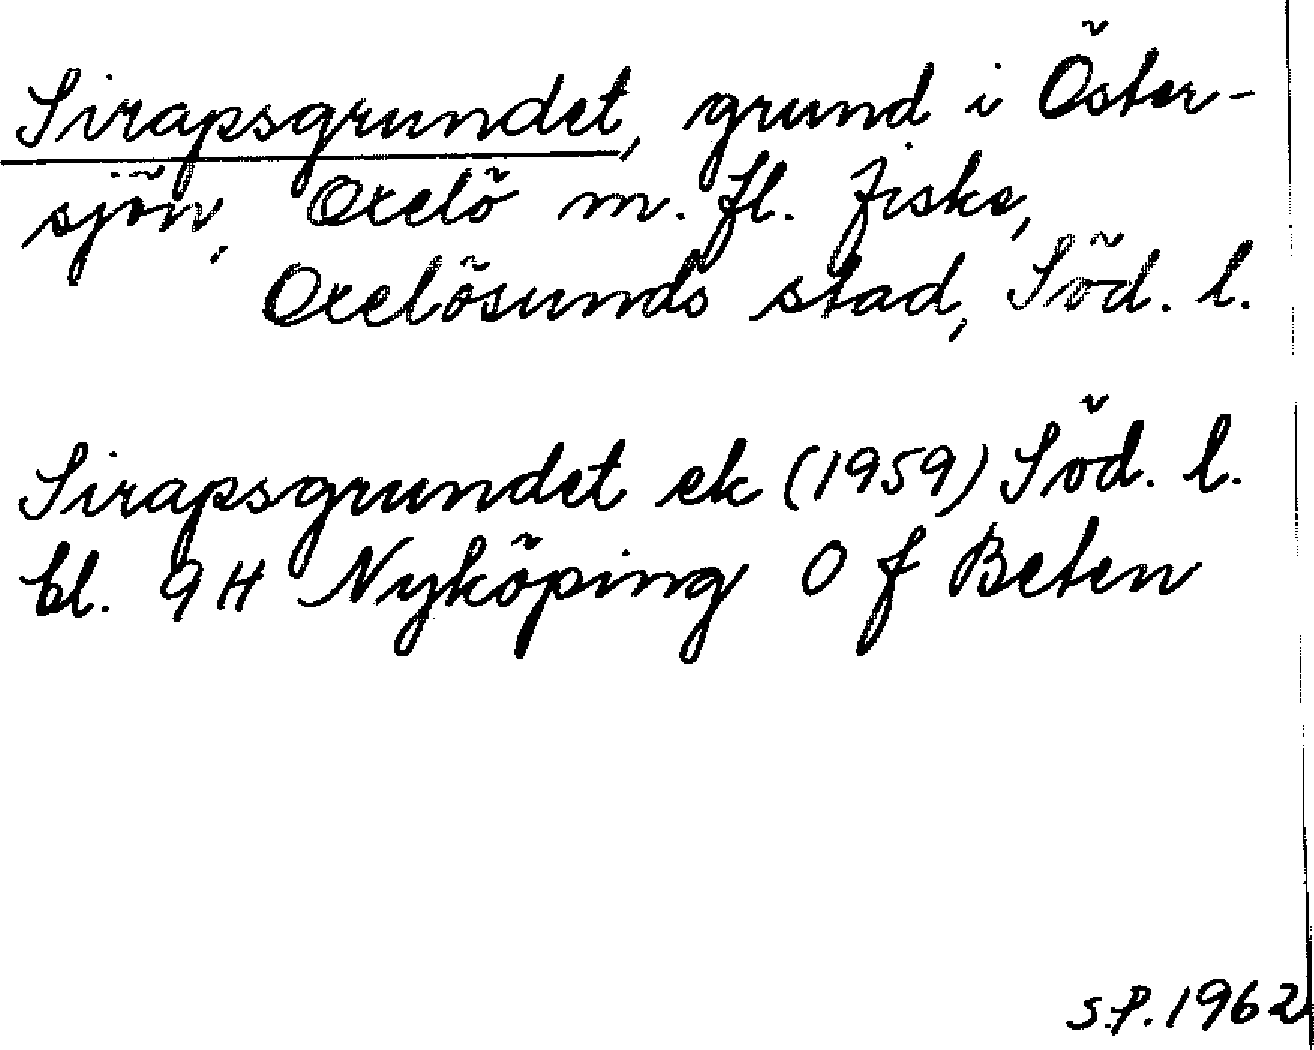 Sirapsgrundet, grund i Öster-
sjön, Oxelö m. fl. fiske,
Oxelösunds stad, Söd. l.
Sirapsgrundet ek (1959) Söd. l.
bl. 9H Nyköping O f Beten
S.P. 1962